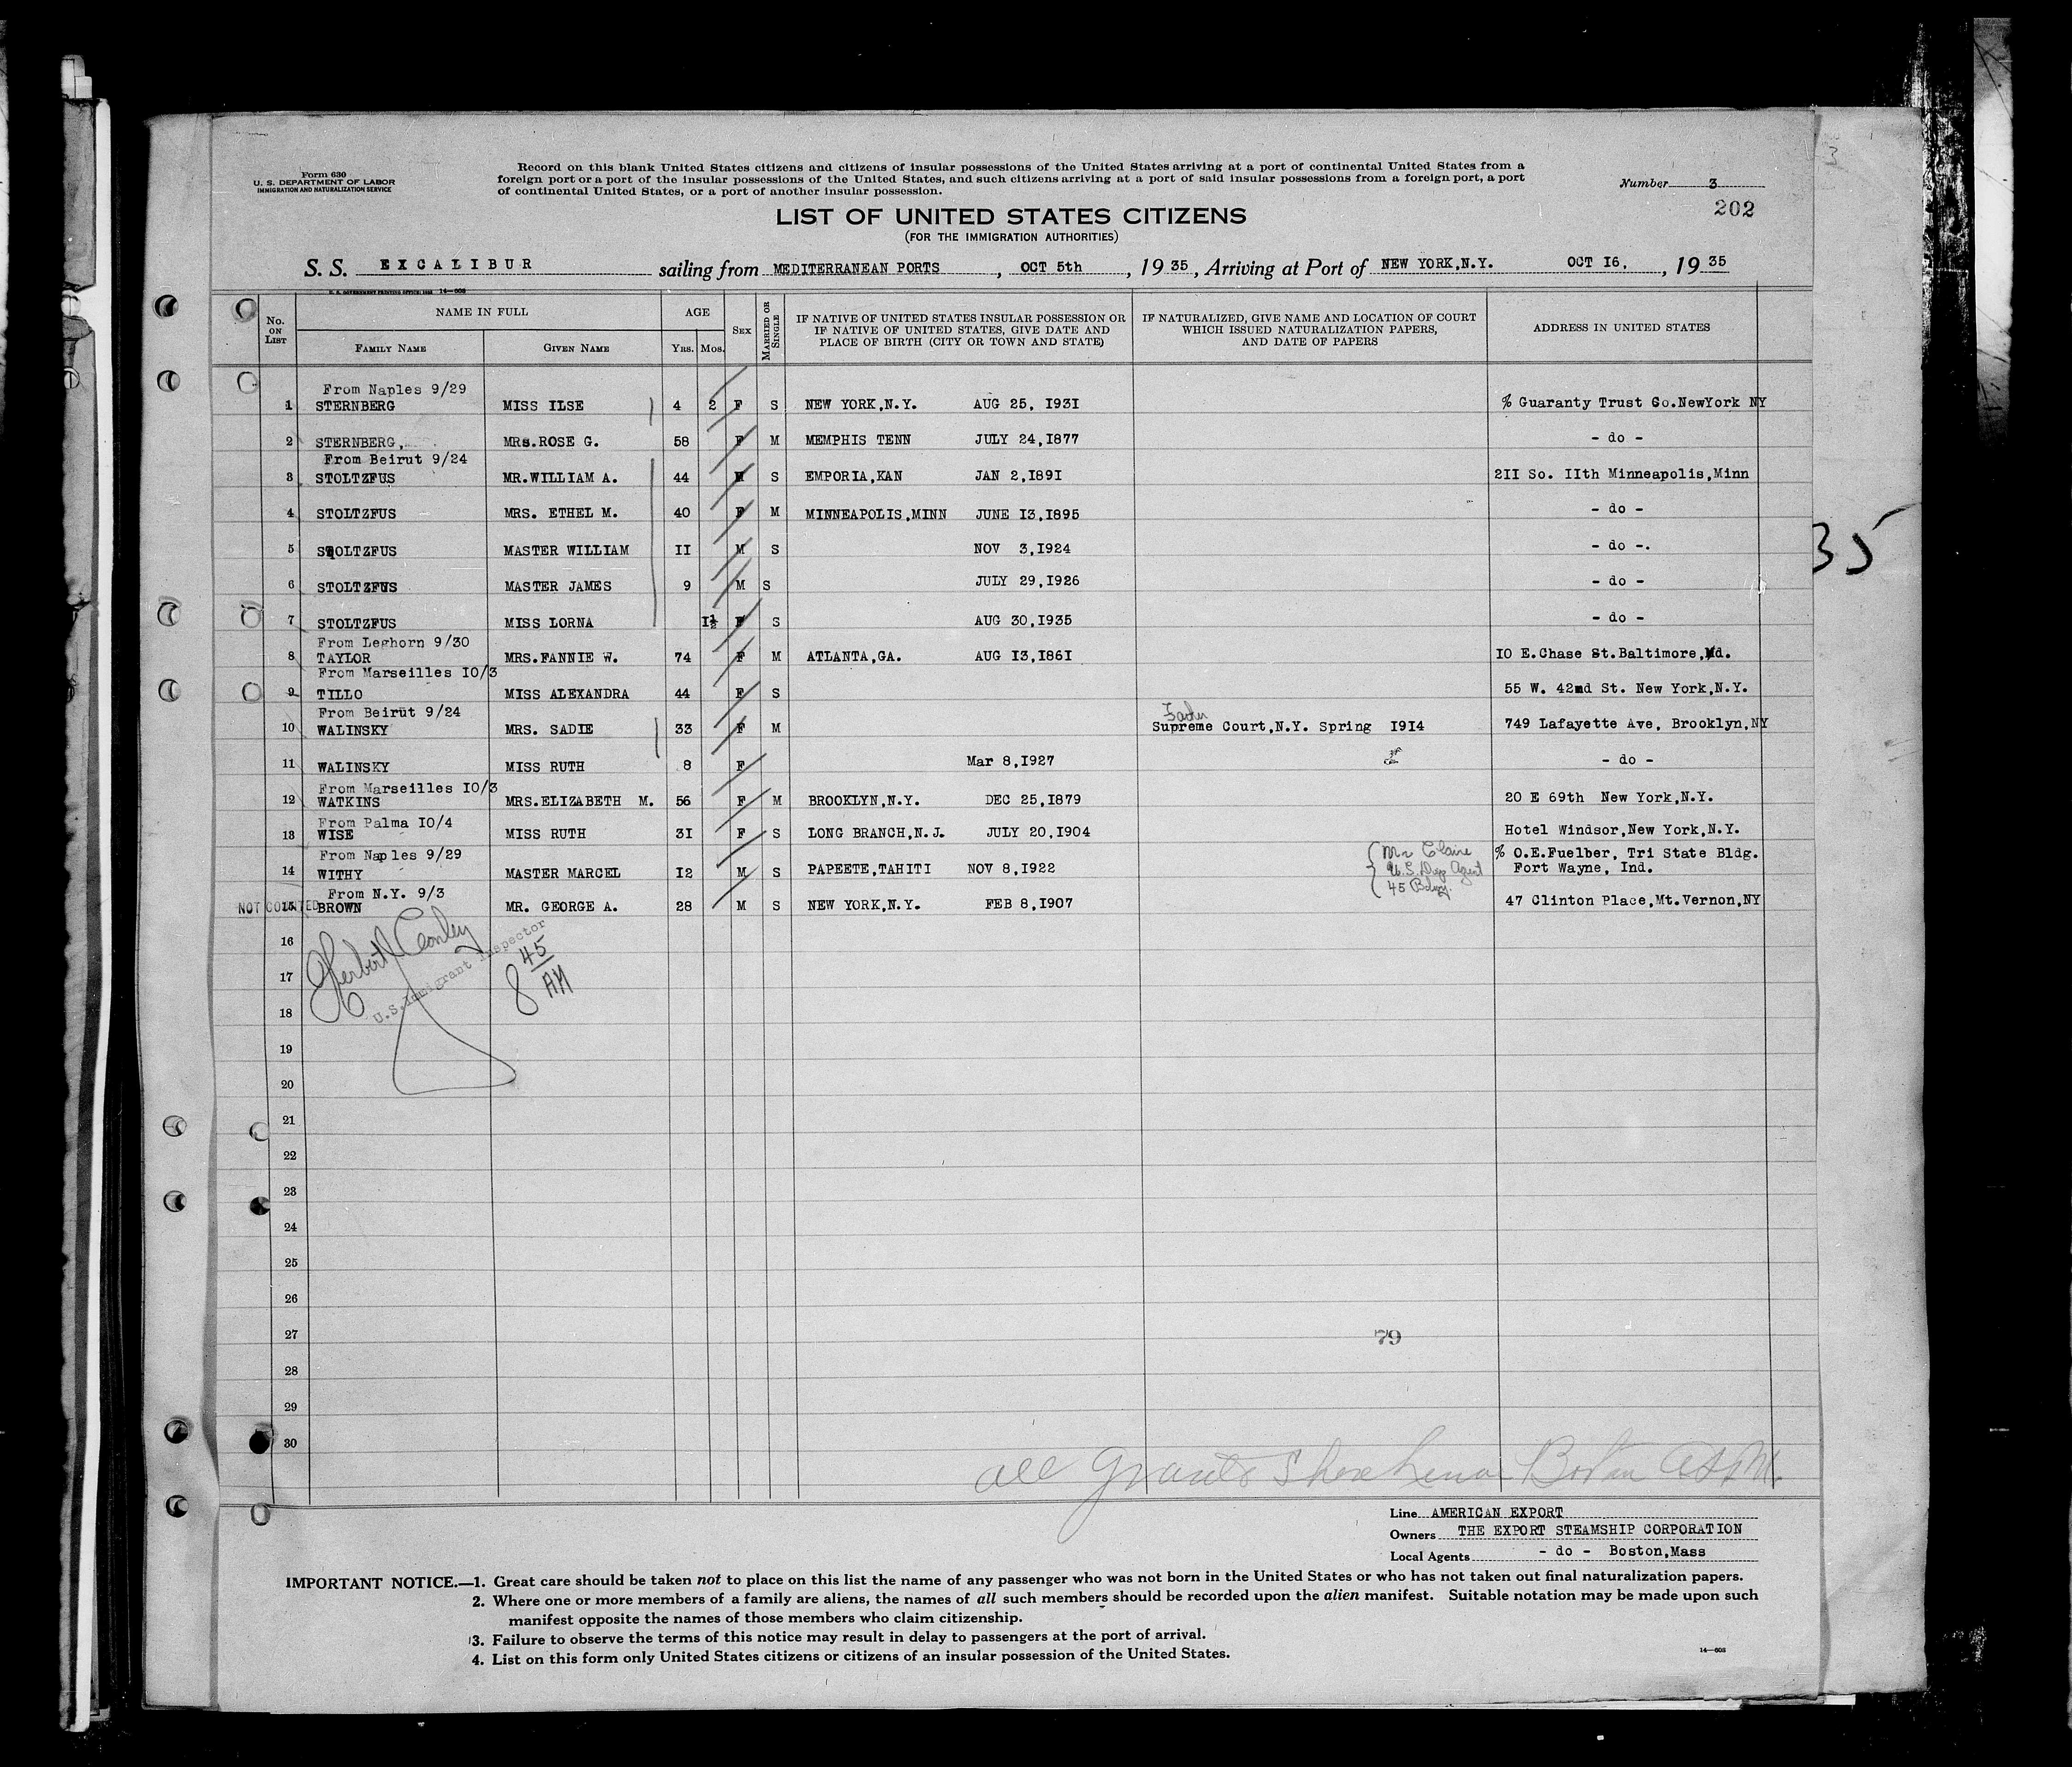 Form 630
U. S. DEPARTMENT OF LABOR
IMMIGRATION AND NATURALIZATION SERVICE
Record on this blank United States citizens and citizens of insular possessions of the United States arriving at a port of continental United States from a
foreign port or a port of the insular possessions of the United States, and such citizens arriving at a port of said insular possessions from a foreign port, a port
of continental United States, or a port of another insular possession.
Number 3
202
LIST OF UNITED STATES CITIZENS
(FOR THE IMMIGRATION AUTHORITIES)
S. S. EXCALIBUR sailing from MEDITERRANEAN PORTS, OCT 5th, 1935, Arriving at Port of NEW YORK,N.Y. OCT I6, , 1935
No. ON LIST NAME IN FULL FAMILY NAME GIVEN NAME AGE YRS. MOS. SEX MARRIED OR SINGLE IF NATIVE OF UNITED STATES INSULAR POSSESSION OR IF NATIVE OF UNITED STATES, GIVE DATE AND PLACE OF BIRTH (CITY OR TOWN AND STATE) IF NATURALIZED, GIVE NAME AND LOCATION OF COURT WHICH ISSUED NATURALIZATION PAPERS, AND DATE OF PAPERS ADDRESS IN UNITED STATES
From Naples 9/29
1 STERNBERG MISS ILSE 4 2 F S NEW YORK,N.Y. AUG 25, I93I % Guaranty Trust Co.NewYork NY
2 STERNBERG, MRs.ROSE G. 58 F M MEMPHIS TENN JULY 24,I877 - do -
From Beirut 9/24
3 STOLTZFUS MR.WILLIAM A. 44 M S EMPORIA,KAN JAN 2,I89I 2II So. IIth Minneapolis,Minn
4 STOLTZFUS MRS. ETHEL M. 40 F M MINNEAPOLIS,MINN JUNE I3,I895 - do -
5 STOLTZFUS MASTER WILLIAM II M S NOV 3,I924 - do -.
6 STOLTZFUS MASTER JAMES 9 M S JULY 29,I926 - do -
7 STOLTZFUS MISS LORNA I½ F S AUG 30,I935 - do -
From Leghorn 9/30
8 TAYLOR MRS.FANNIE W. 74 F M ATLANTA,GA. AUG I3,I86I IO E.Chase St.Baltimore,Md.
From Marseilles IO/3
9 TILLO MISS ALEXANDRA 44 F S 55 W. 42nd St. New York,N.Y.
From Beirut 9/24
10 WALINSKY MRS. SADIE 33 F M Supreme Court,N.Y. Spring I9I4 749 Lafayette Ave, Brooklyn,NY
11 WALINSKY MISS RUTH 8 F Mar 8,I927 - do -
From Marseilles IO/3
12 WATKINS MRS.ELIZABETH M. 56 F M BROOKLYN,N.Y. DEC 25,I879 20 E 69th New York,N.Y.
From Palma IO/4
13 WISE MISS RUTH 3I F S LONG BRANCH,N.J. JULY 20,I904 Hotel Windsor,New York,N.Y.
From Naples 9/29
14 WITHY MASTER MARCEL I2 M S PAPEETE,TAHITI NOV 8,I922 % O.E.Fuelber, Tri State Bldg.
Fort Wayne, Ind.
From N.Y. 9/3
NOT COUNTED 15 BROWN MR. GEORGE A. 28 M S NEW YORK,N.Y. FEB 8,I907 47 Clinton Place,Mt.Vernon,NY
35
16
U.S. Immigrant Inspector
8 45 AM
17
18
19
20
21
22
23
24
25
26
27
79
28
29
30
Line AMERICAN EXPORT
Owners THE EXPORT STEAMSHIP CORPORATION
Local Agents - do - Boston,Mass
IMPORTANT NOTICE.—1. Great care should be taken not to place on this list the name of any passenger who was not born in the United States or who has not taken out final naturalization papers.
2. Where one or more members of a family are aliens, the names of all such members should be recorded upon the alien manifest. Suitable notation may be made upon such
manifest opposite the names of those members who claim citizenship.
3. Failure to observe the terms of this notice may result in delay to passengers at the port of arrival.
4. List on this form only United States citizens or citizens of an insular possession of the United States.